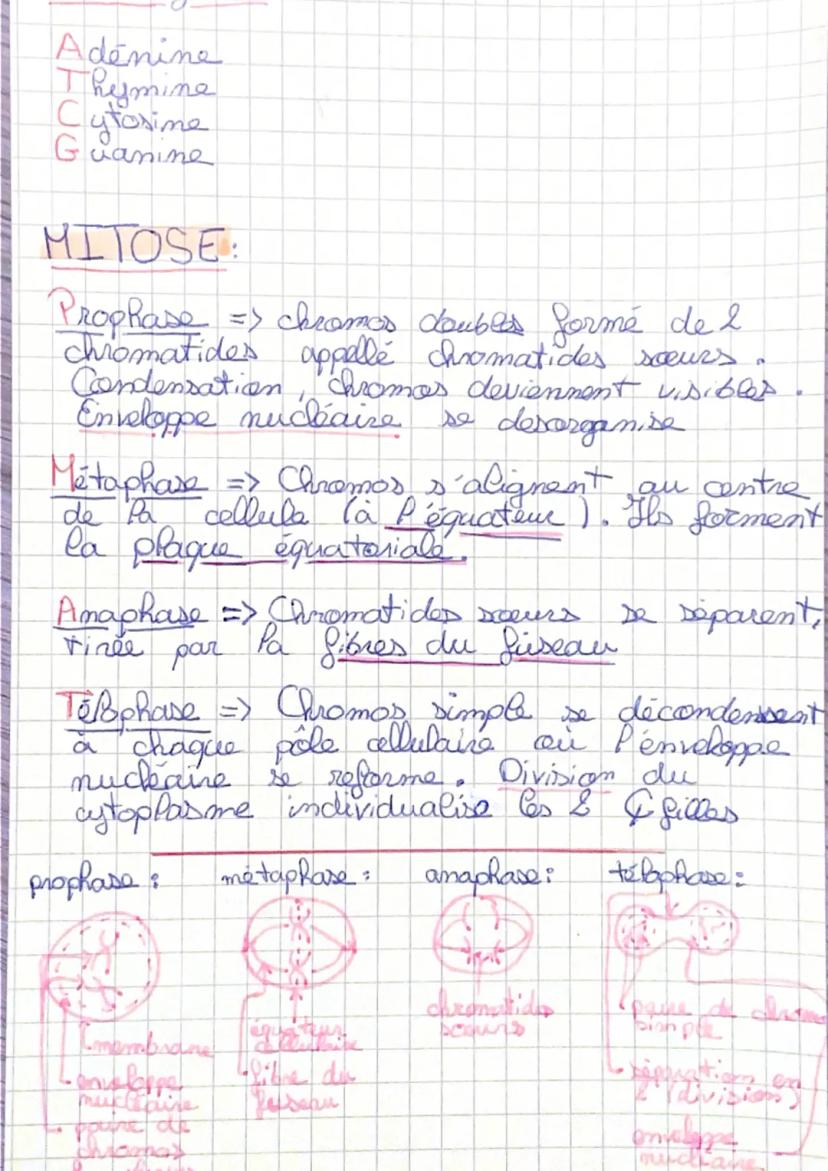 Adénine
Thymine
Cytosine
Guanine
MITOSE:
Prophase => chromos doubles formé de 2
chromatides appellé chromatides sœurs.
Condensation, chromos deviennent visibles.
Enveloppe nucléaire se desorganise
Métaphase => Chromos s'alignent au centre
de la cellule (à l'équateur). Ils forment
la plaque équatoriale.
Anaphase => Chromatides sœurs se séparent,
tirée par la fibres du fuseau
Télophase => Chromos simple se décondensent
à chaque pôle cellulaire où l'enveloppe
nucléaire se reforme. Division du
cytoplasme individualise les 2 ¢ filles
prophase: métaphase: anaphase: télophase:
membrane
enveloppe
nucléaire
paire de
chromos
équateur
cellulaire
fibre du
fuseau
chromatides
sœurs
paire de chromo
simple
séparation en
2 (division)
enveloppe
nucléaire